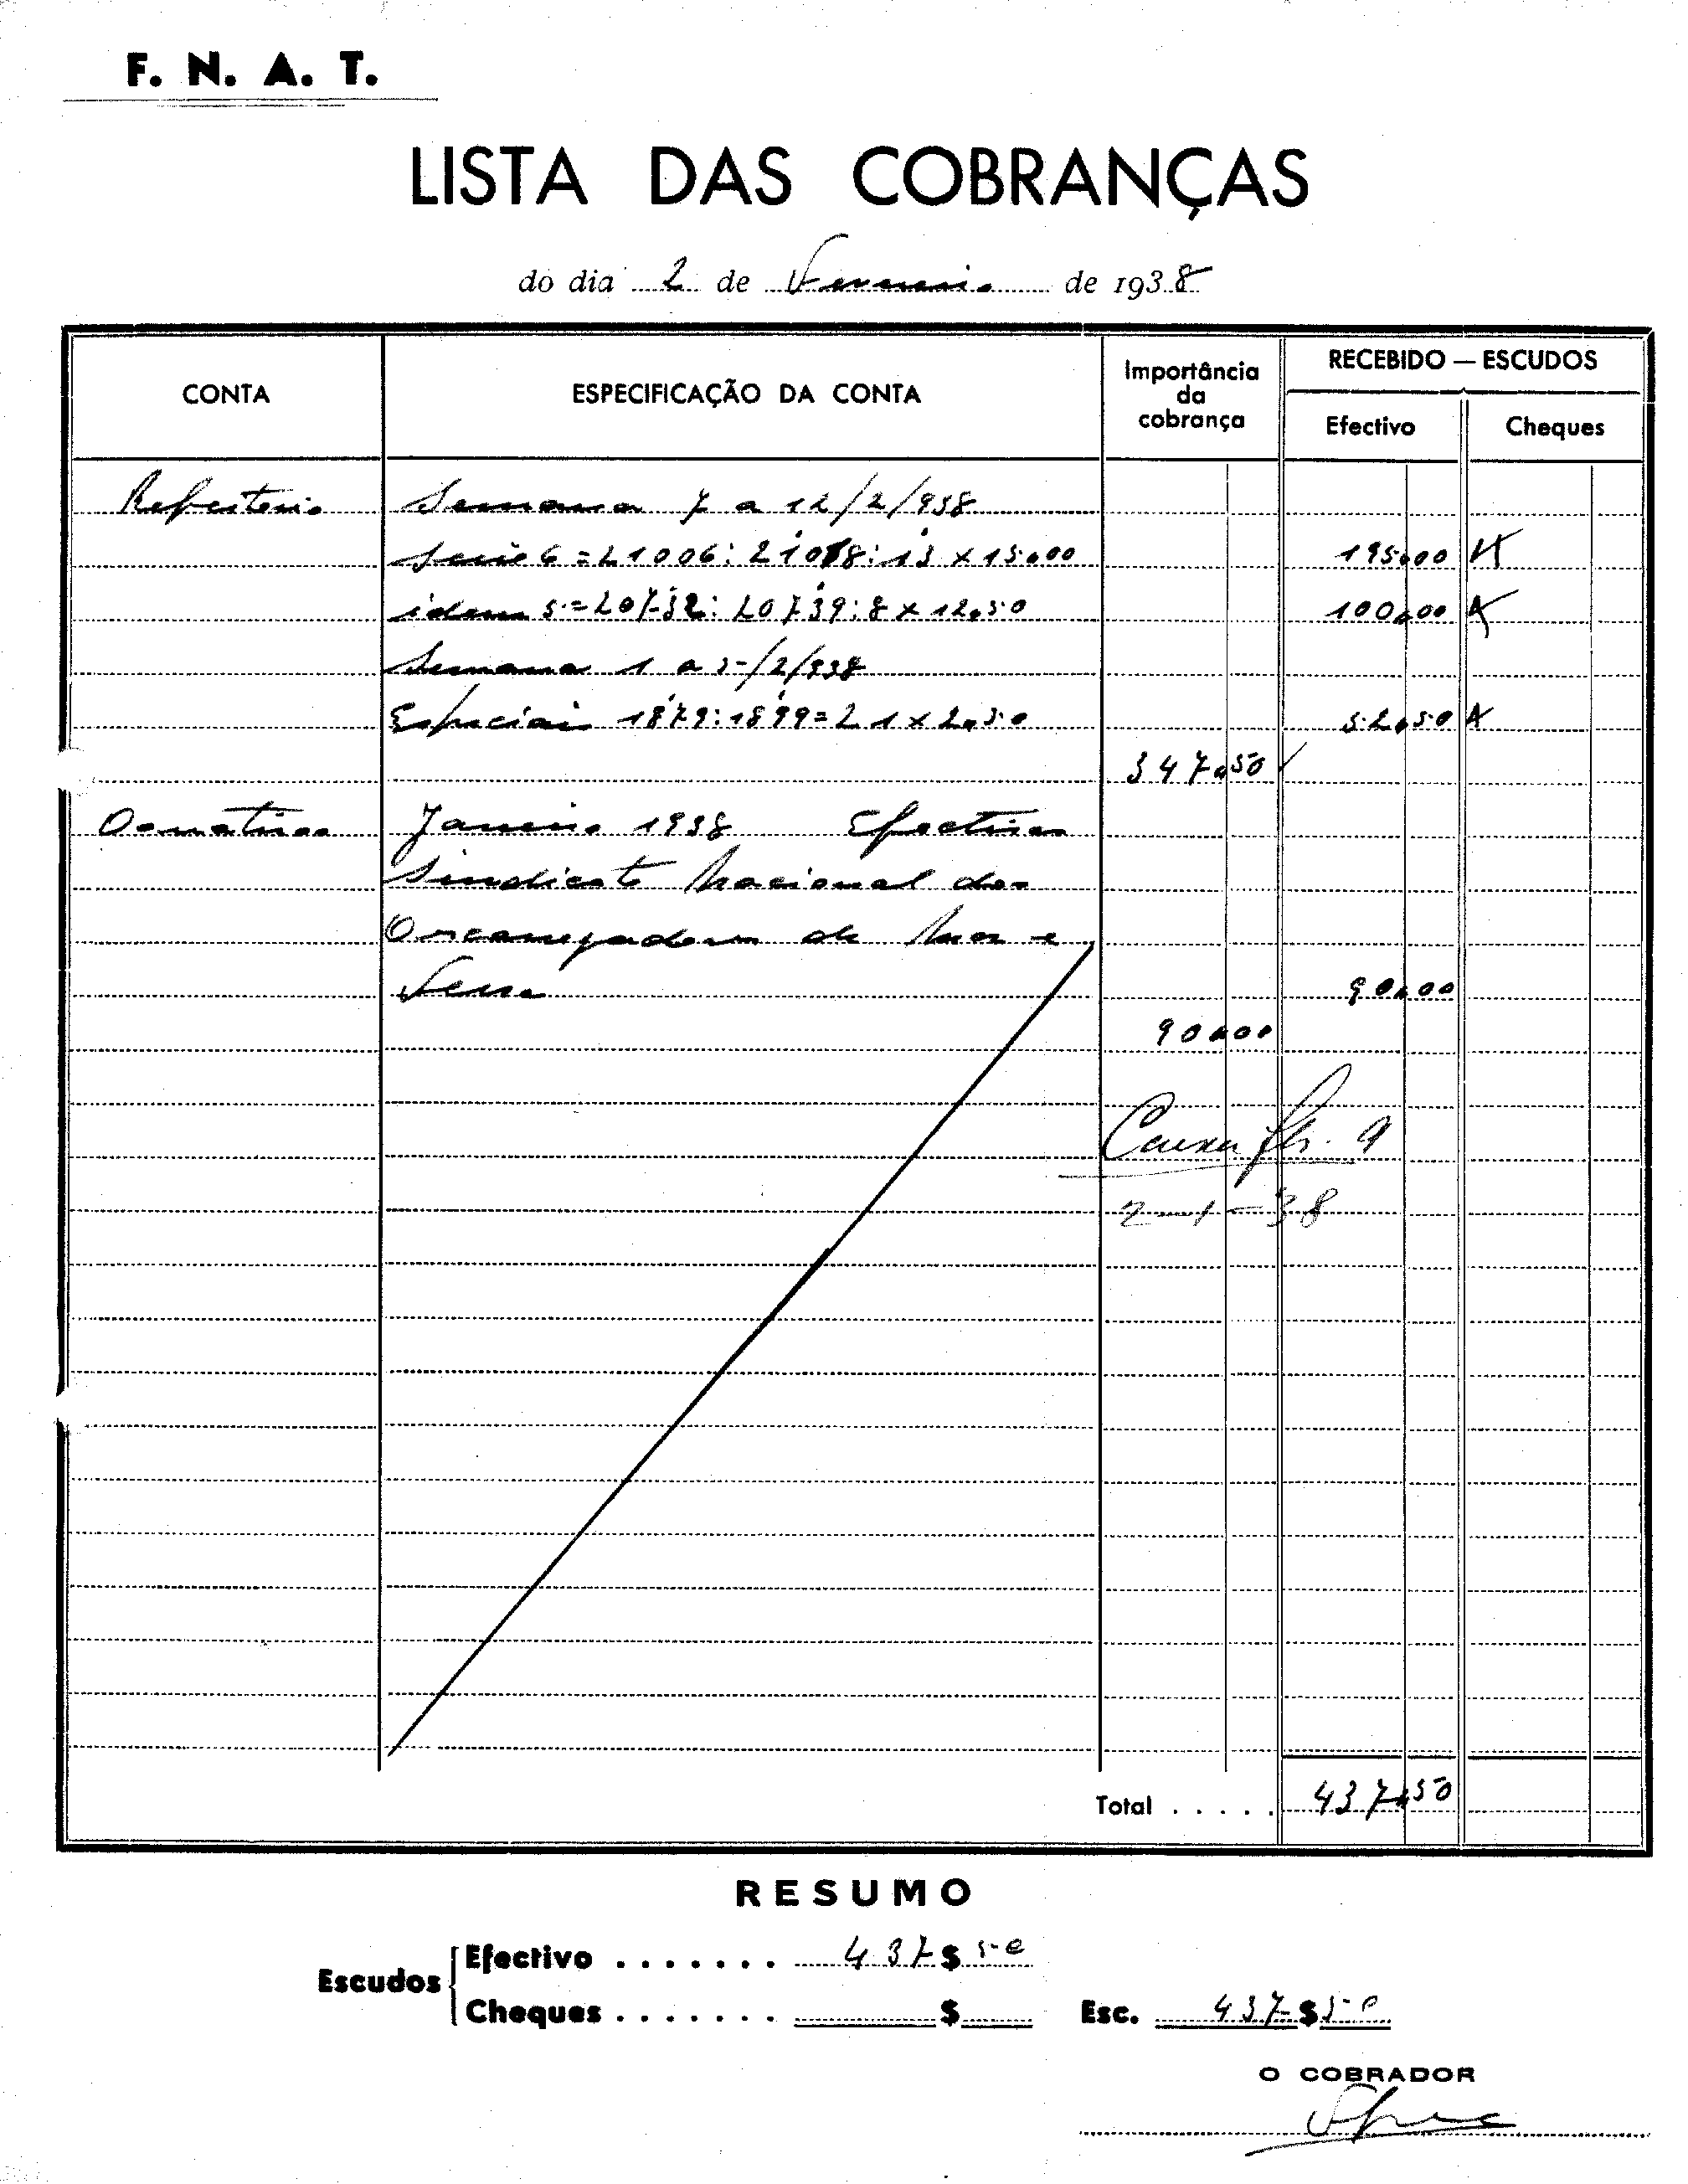 F. N. A. T.
LISTA DAS COBRANÇAS
do dia 2 de Fevereiro de 1938
CONTA
ESPECIFICAÇÃO DA CONTA
Importância da cobrança
RECEBIDO — ESCUDOS
Efectivo
Cheques
Refeitorio Semana 7 a 12/2/938
Serie 6 = 21006: 21018: 13 x 15.00 195.00
idem 5 = 20732: 20739: 8 x 12.50 100.00
Semana 1 a 5/2/938
Especiais 1879: 1899 = 21 x 2.50 52.50
347.50
Donativos Janeiro 1938 Efectivos
Sindicato Nacional dos
de Mar e
Terra 90.00
90.00
Caixa fls. 9
2-1-38
Total ..... 437.50
RESUMO
Escudos
Efectivo ....... 437$50
Cheques ....... $
Esc. 437$50
O COBRADOR